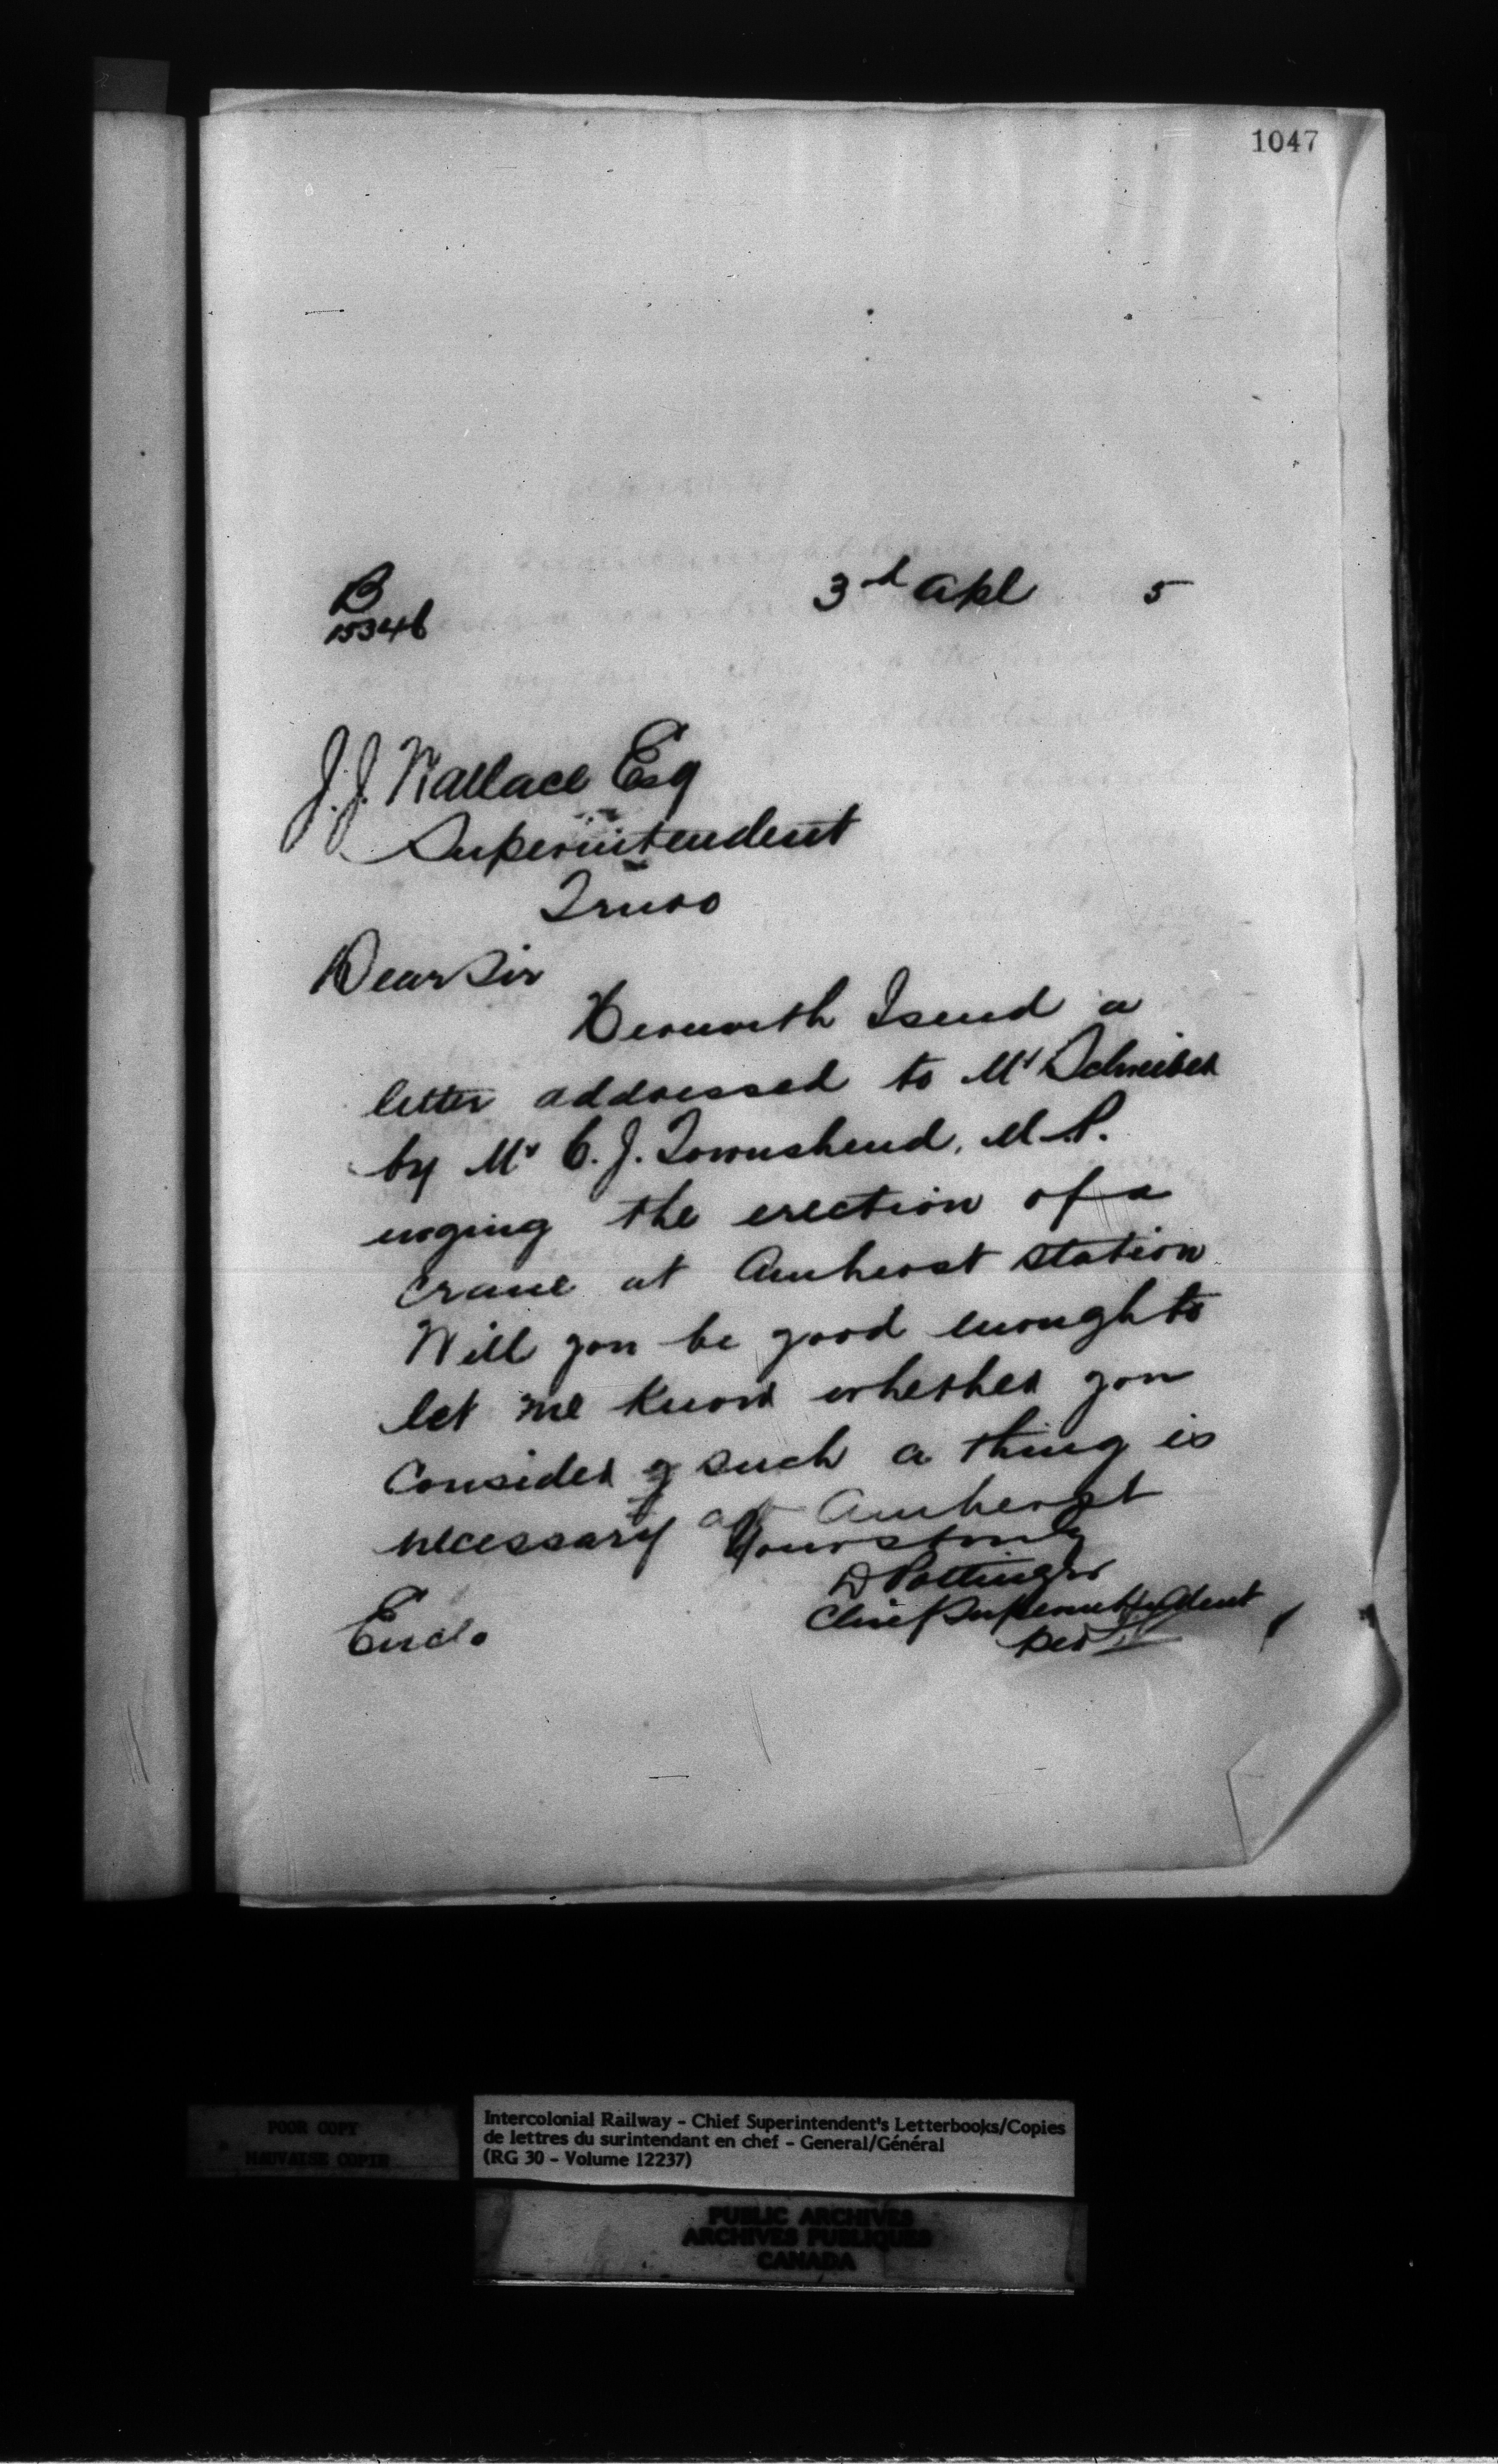 1047
B
15346
3rd Apl 5
J.J. Wallace Esq
Superintendent
Truro
Dear Sir
Herewith I send a
letter addressed to Mr Schreiber
by Mr C. J. Townshend, M.P.
urging the erection of a
crane at Amherst station
Will you be good enough to
let me know whether you
consider such a thing is
necessary at Amherst
Yours truly
D Pottinger
Chief Superintendent
per
Encl.
POOR COPY
MAUVAISE COPIE
Intercolonial Railway - Chief Superintendent's Letterbooks/Copies
de lettres du surintendant en chef - General/Général
(RG 30 - Volume 12237)
PUBLIC ARCHIVES
ARCHIVES PUBLIQUES
CANADA